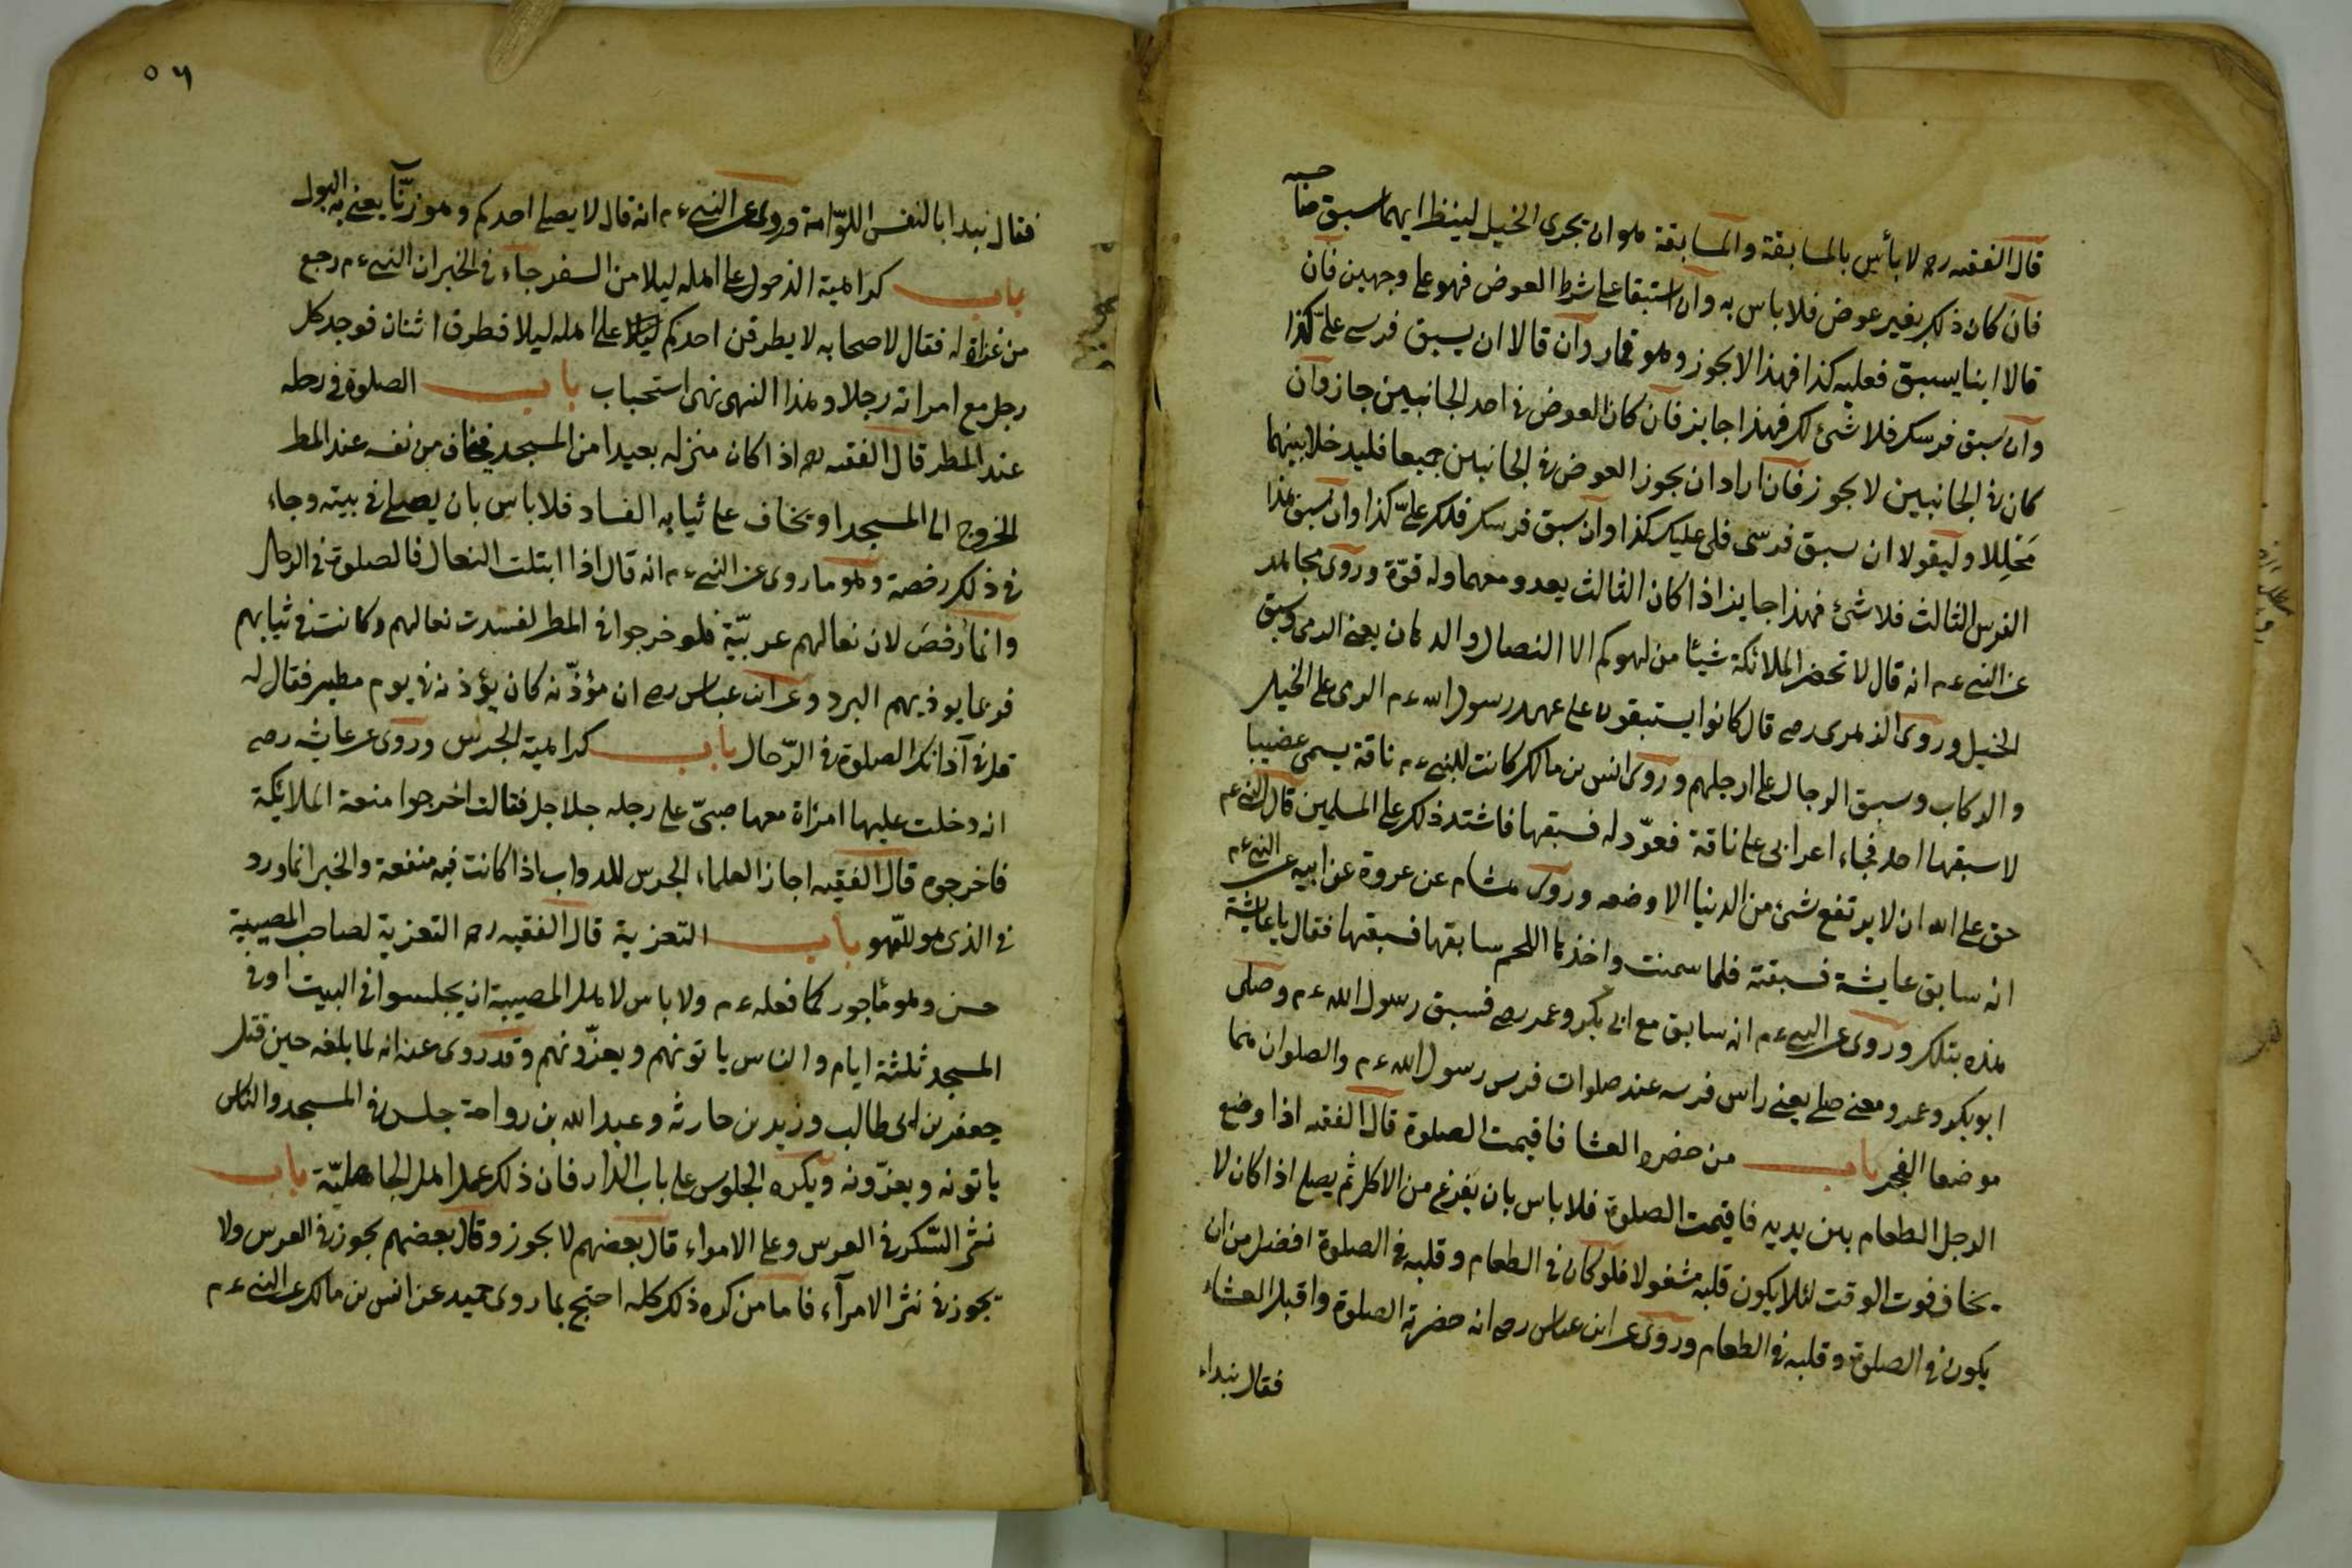 قال الفقيه رح لا بأس بالمسابقة والمسابقة هو ان يجرى الخيل لينظر ايهما سبق صاحبه
فان كان ذلك بغير عوض فلا باس به وان استبقا على شرط العوض فهو على وجهين فان
قالا اينا يسبق فعليه كذا فهذا لا يجوز وهو قمار وان قالا ان يسبق فرسى علىّ كذا
وان سبق فرسك فلا شئ لك فهذا جايز فان كان العوض فى احد الجانبين جاز وان
كان فى الجانبين لا يجوز فان اراد ان يجوز العوض فى الجانبين جميعا فليدخلا بينهما
مَحلِلا وليقولا ان سبق فرسى فلى عليك كذا وان سبق فرسك فلك علىّ كذا وان سبق هذا
الفرس الثالث فلا شئ فهذا جايز اذا كان الثالث يعدو معهما وله قوّة وروى مجاهد
عن النبى ءم انه قال لا تحضر الملائكة شيئا من لهوكم الا النصال والرهان يعنى الرمى وسبق
الخيل وروى الزهرى رح قال كانوا يستبقون على عهد رسول الله ءم الرمى على الخيل
والركاب وسبق الرجال على ارجلهم وروى انس بن مالك كانت للنبى ءم ناقة يسمى عضيبا
لا سبقها احد فجاء اعرابى على ناقة فعوّد له فسبقها فاشتد ذلك على المسلمين قال النبى ءم
حق على الله ان لا يرتفع شئ من الدنيا الا وضعه وروى هشام عن عروة عن ابيه عن النبى ءم
انه سابق عايشة فسبقته فلما سمنت واخذها اللحم سابقها فسبقها فقال يا عايشة
هذه بتلك وروى عن النبى ءم انه سابق مع ابى بكر وعمر رض فسبق رسول الله ءم وصلى
ابو بكر وعمر ومعنى صلى يعنى راس فرسه عند صلوات فرس رسول الله ءم والصلوان هما
موضعا الفجر باب من حضره العشا فاقيمت الصلوة قال الفقيه اذا وضع
الرجل الطعام بين يديه فاقيمت الصلوة فلا باس بان يفرغ من الاكل ثم يصلى اذا كان لا
يخاف فوت الوقت لئلا يكون قلبه مشغولا فلو كان فى الطعام وقلبه فى الصلوة افضل من ان
يكون فى الصلوة وقلبه فى الطعام وروى عن ابن عباس رض انه حضرته الصلوة واقبل العشاء
فقال نبداء
٥٦
فقال نبدا بالنفس اللوّامة وروى عن النبى ءم انه قال لا يصلى احدكم وهو زنّآ يعنى به البول
باب كراهية الدخول على اهله ليلا من السفر جاء فى الخبر ان النبى ءم رجع
من غزاة له فقال لاصحابه لا يطرقن احدكم ليلا على اهله ليلا فطرق اثنان فوجد كل
رجل مع امراته رجلا وهذا النهى نهى استحباب باب الصلوة فى رحله
عند المطر قال الفقيه رح اذا كان منزله بعيدا من المسجد فيخاف من نفسه عند المطر
الخروج الى المسجد او يخاف على ثيابه الفساد فلا باس بان يصلى فى بيته وجاء
فى ذلك رخصة وهو ما روى عن النبى ءم انه قال اذا ابتلت النعال فالصلوة فى الرحال
وانما رخص لان نعالهم عربيّة فلو خرجوا فى المطر لفسدت نعالهم وكانت فى ثيابهم
فربما يوذيهم البرد وعن ابن عباس رض ان مؤذّنه كان يؤذنه فى يوم مطير فقال له
قل فى آذانك الصلوة فى الرّحال باب كراهية الجرس وروى عن عايشه رض
انه دخلت عليها امراة معها صبىّ على رجله جلاجل فقالت اخرجوا منعة الملائكة
فاخرجوه قال الفقيه اجاز العلماء الجرس للدواب اذا كانت فيه منفعة والخبر انما ورد
فى الذى هو للّهو باب التعزية قال الفقيه رح التعزية لصاحب المصيبة
حسن وهو مأجور كما فعله ءم ولا باس لاهل المصيبة ان يجلسوا فى البيت او فى
المسجد ثلثة ايام والناس ياتونهم ويعزّونهم وقد روى عنه انه لما بلغه حين قتل
جعفر بن ابى طالب وزيد بن حارثه وعبد الله بن رواحة جلس فى المسجد والناس
ياتونه ويعزّونه ويكره الجلوس على باب الدار فان ذلك عمل اهل الجاهليّة باب
نثر السّكر فى العرس وعلى الامراء قال بعضهم لا يجوز وقال بعضهم يجوز فى العرس ولا
يجوز فى نثر الامرآء فاما من كره ذلك كله احتج بما روى حميد عن انس بن مالك عن النبى ءم